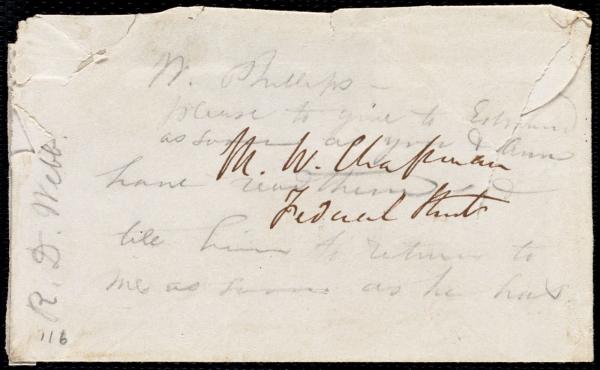 W. Phillips -
please to give to Edmund
as soon as you & Ann
have read them and
tell him to return to
me as soon as he has.
M. W. Chapman
Federal Street
R. D. Webb.
116